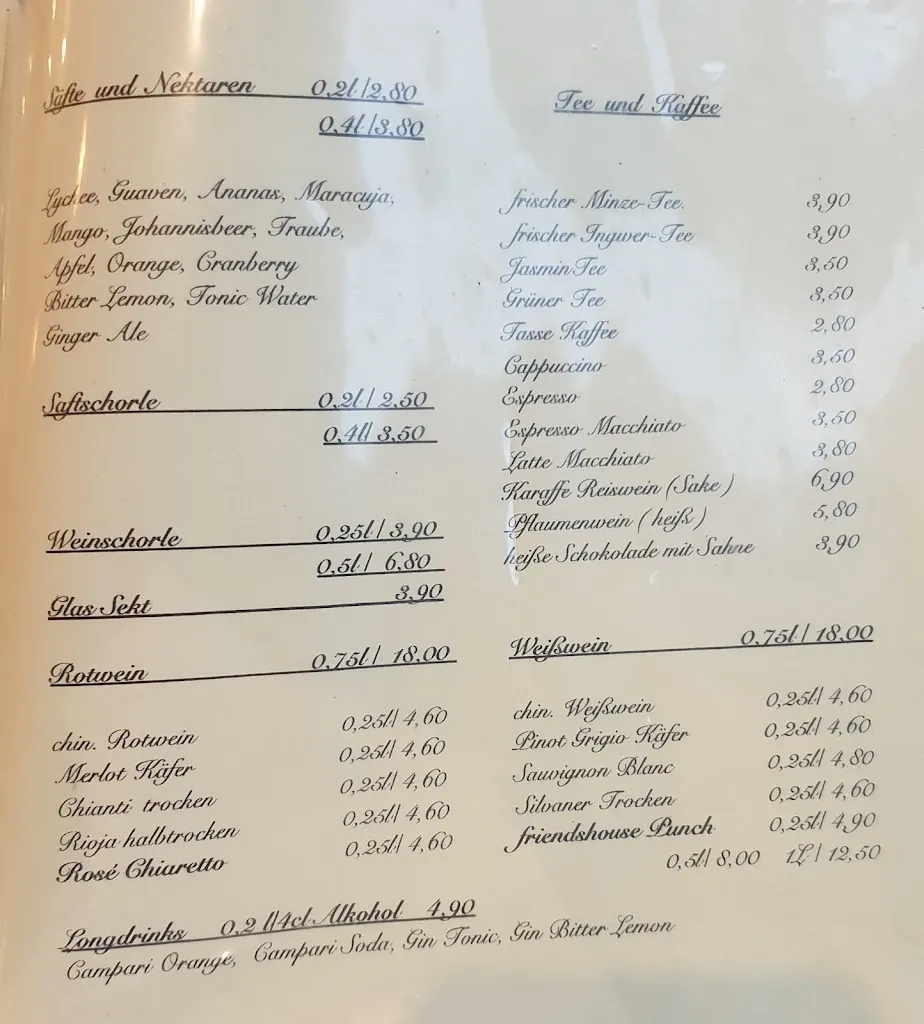 Säfte und Nektaren 0,2l/2,80
0,4l/3,80
Lychee, Guaven, Ananas, Maracuja,
Mango, Johannisbeer, Traube,
Apfel, Orange, Cranberry
Bitter Lemon, Tonic Water
Ginger Ale
Saftschorle 0,2l/ 2,50
0,4l/ 3,50
Weinschorle 0,25l/ 3,90
0,5l/ 6,80
Glas Sekt 3,90
Rotwein 0,75l/ 18,00
chin. Rotwein 0,25l/ 4,60
Merlot Käfer 0,25l/ 4,60
Chianti trocken 0,25l/ 4,60
Rioja halbtrocken 0,25l/ 4,60
Rosé Chiaretto 0,25l/ 4,60
Tee und Kaffee
frischer Minze-Tee. 3,90
frischer Ingwer-Tee 3,90
Jasmin Tee 3,50
Grüner Tee 3,50
Tasse Kaffee 2,80
Cappuccino 3,50
Espresso 2,80
Espresso Macchiato 3,50
Latte Macchiato 3,80
Karaffe Reiswein (Sake) 6,90
Pflaumenwein ( heiß ) 5,80
heiße Schokolade mit Sahne 3,90
Weißwein 0,75l/ 18,00
chin. Weißwein 0,25l/ 4,60
Pinot Grigio Käfer 0,25l/ 4,60
Sauvignon Blanc 0,25l/ 4,80
Silvaner Trocken 0,25l/ 4,60
friendshouse Punch 0,25l/ 4,90
0,5l/ 8,00 1L / 12,50
Longdrinks 0,2 l/4cl Alkohol 4,90
Campari Orange, Campari Soda, Gin Tonic, Gin Bitter Lemon